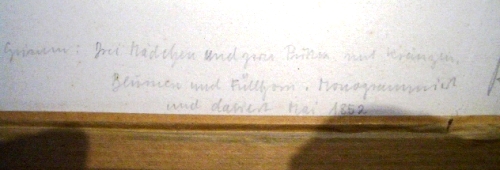 Grimm: Drei Mädchen und zwei Putten mit Kränzen,
Blumen und Füllhorn. Monogrammiert
und datiert Mai 1852